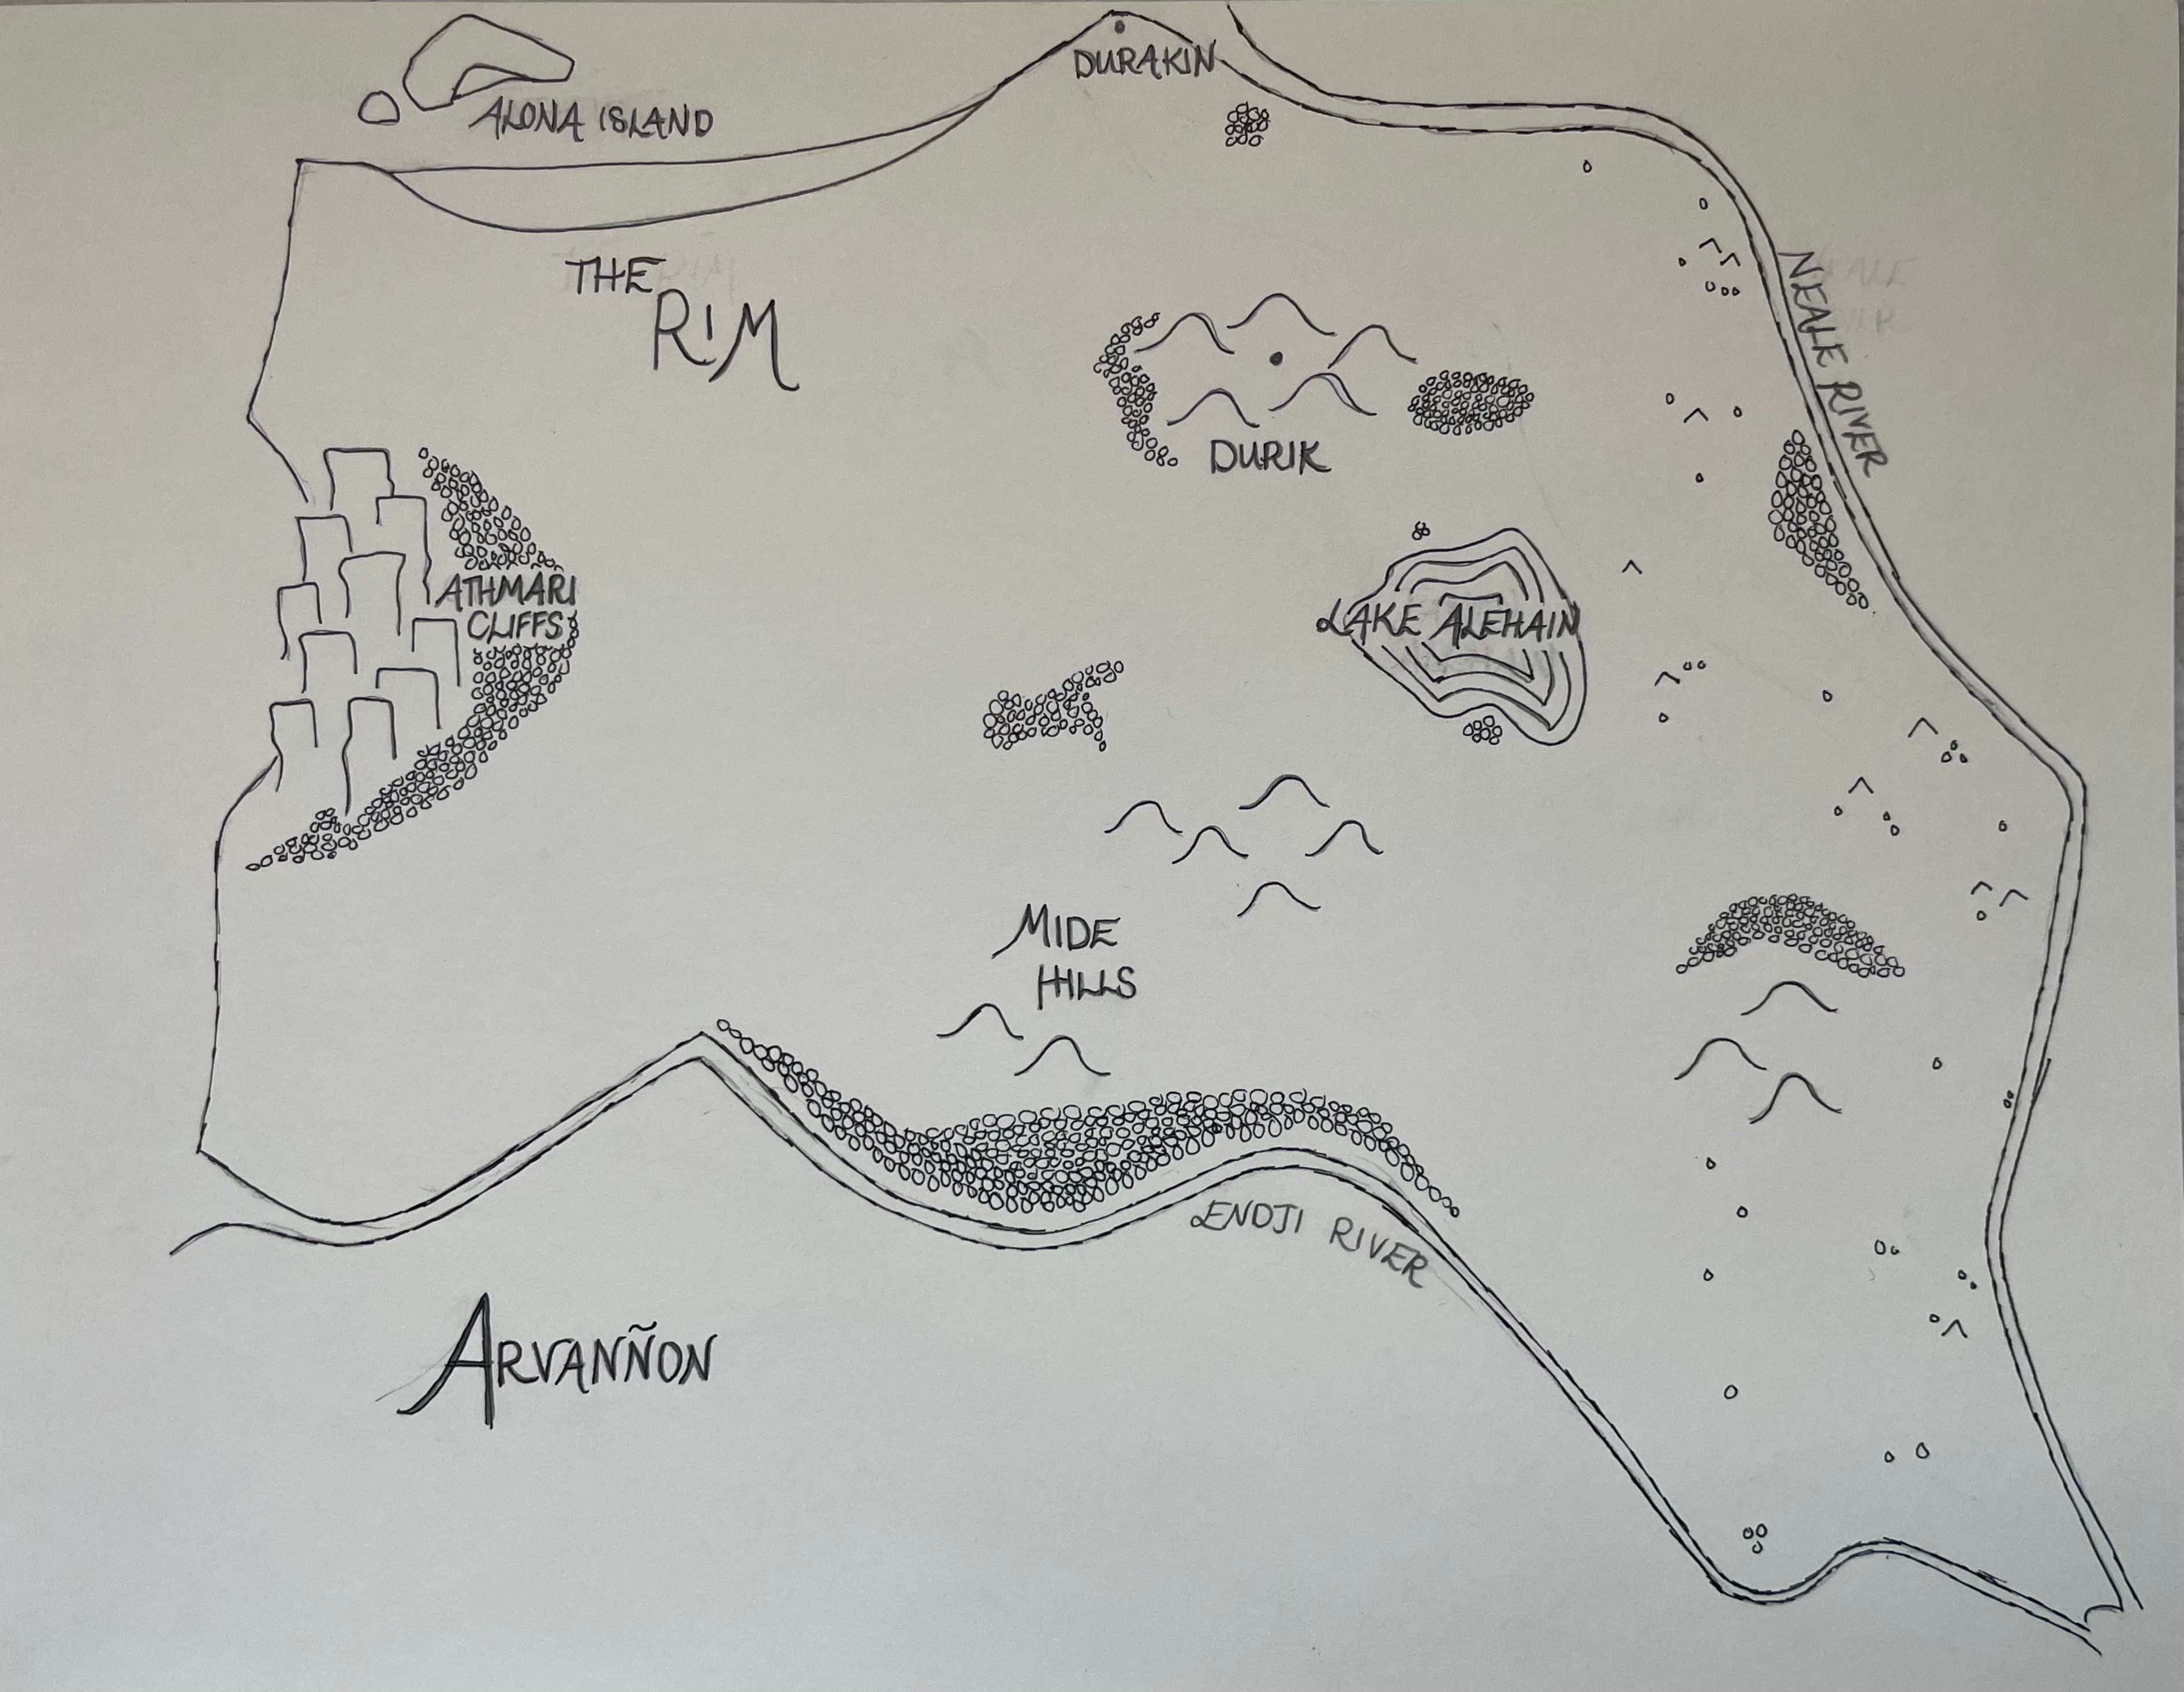 DURAKIN
ALONA ISLAND
THE
RIM
NEALE RIVER
DURIK
ATHMARI
CLIFFS
LAKE ALEHAIN
MIDE
HILLS
ENDJI RIVER
ARVANÑON